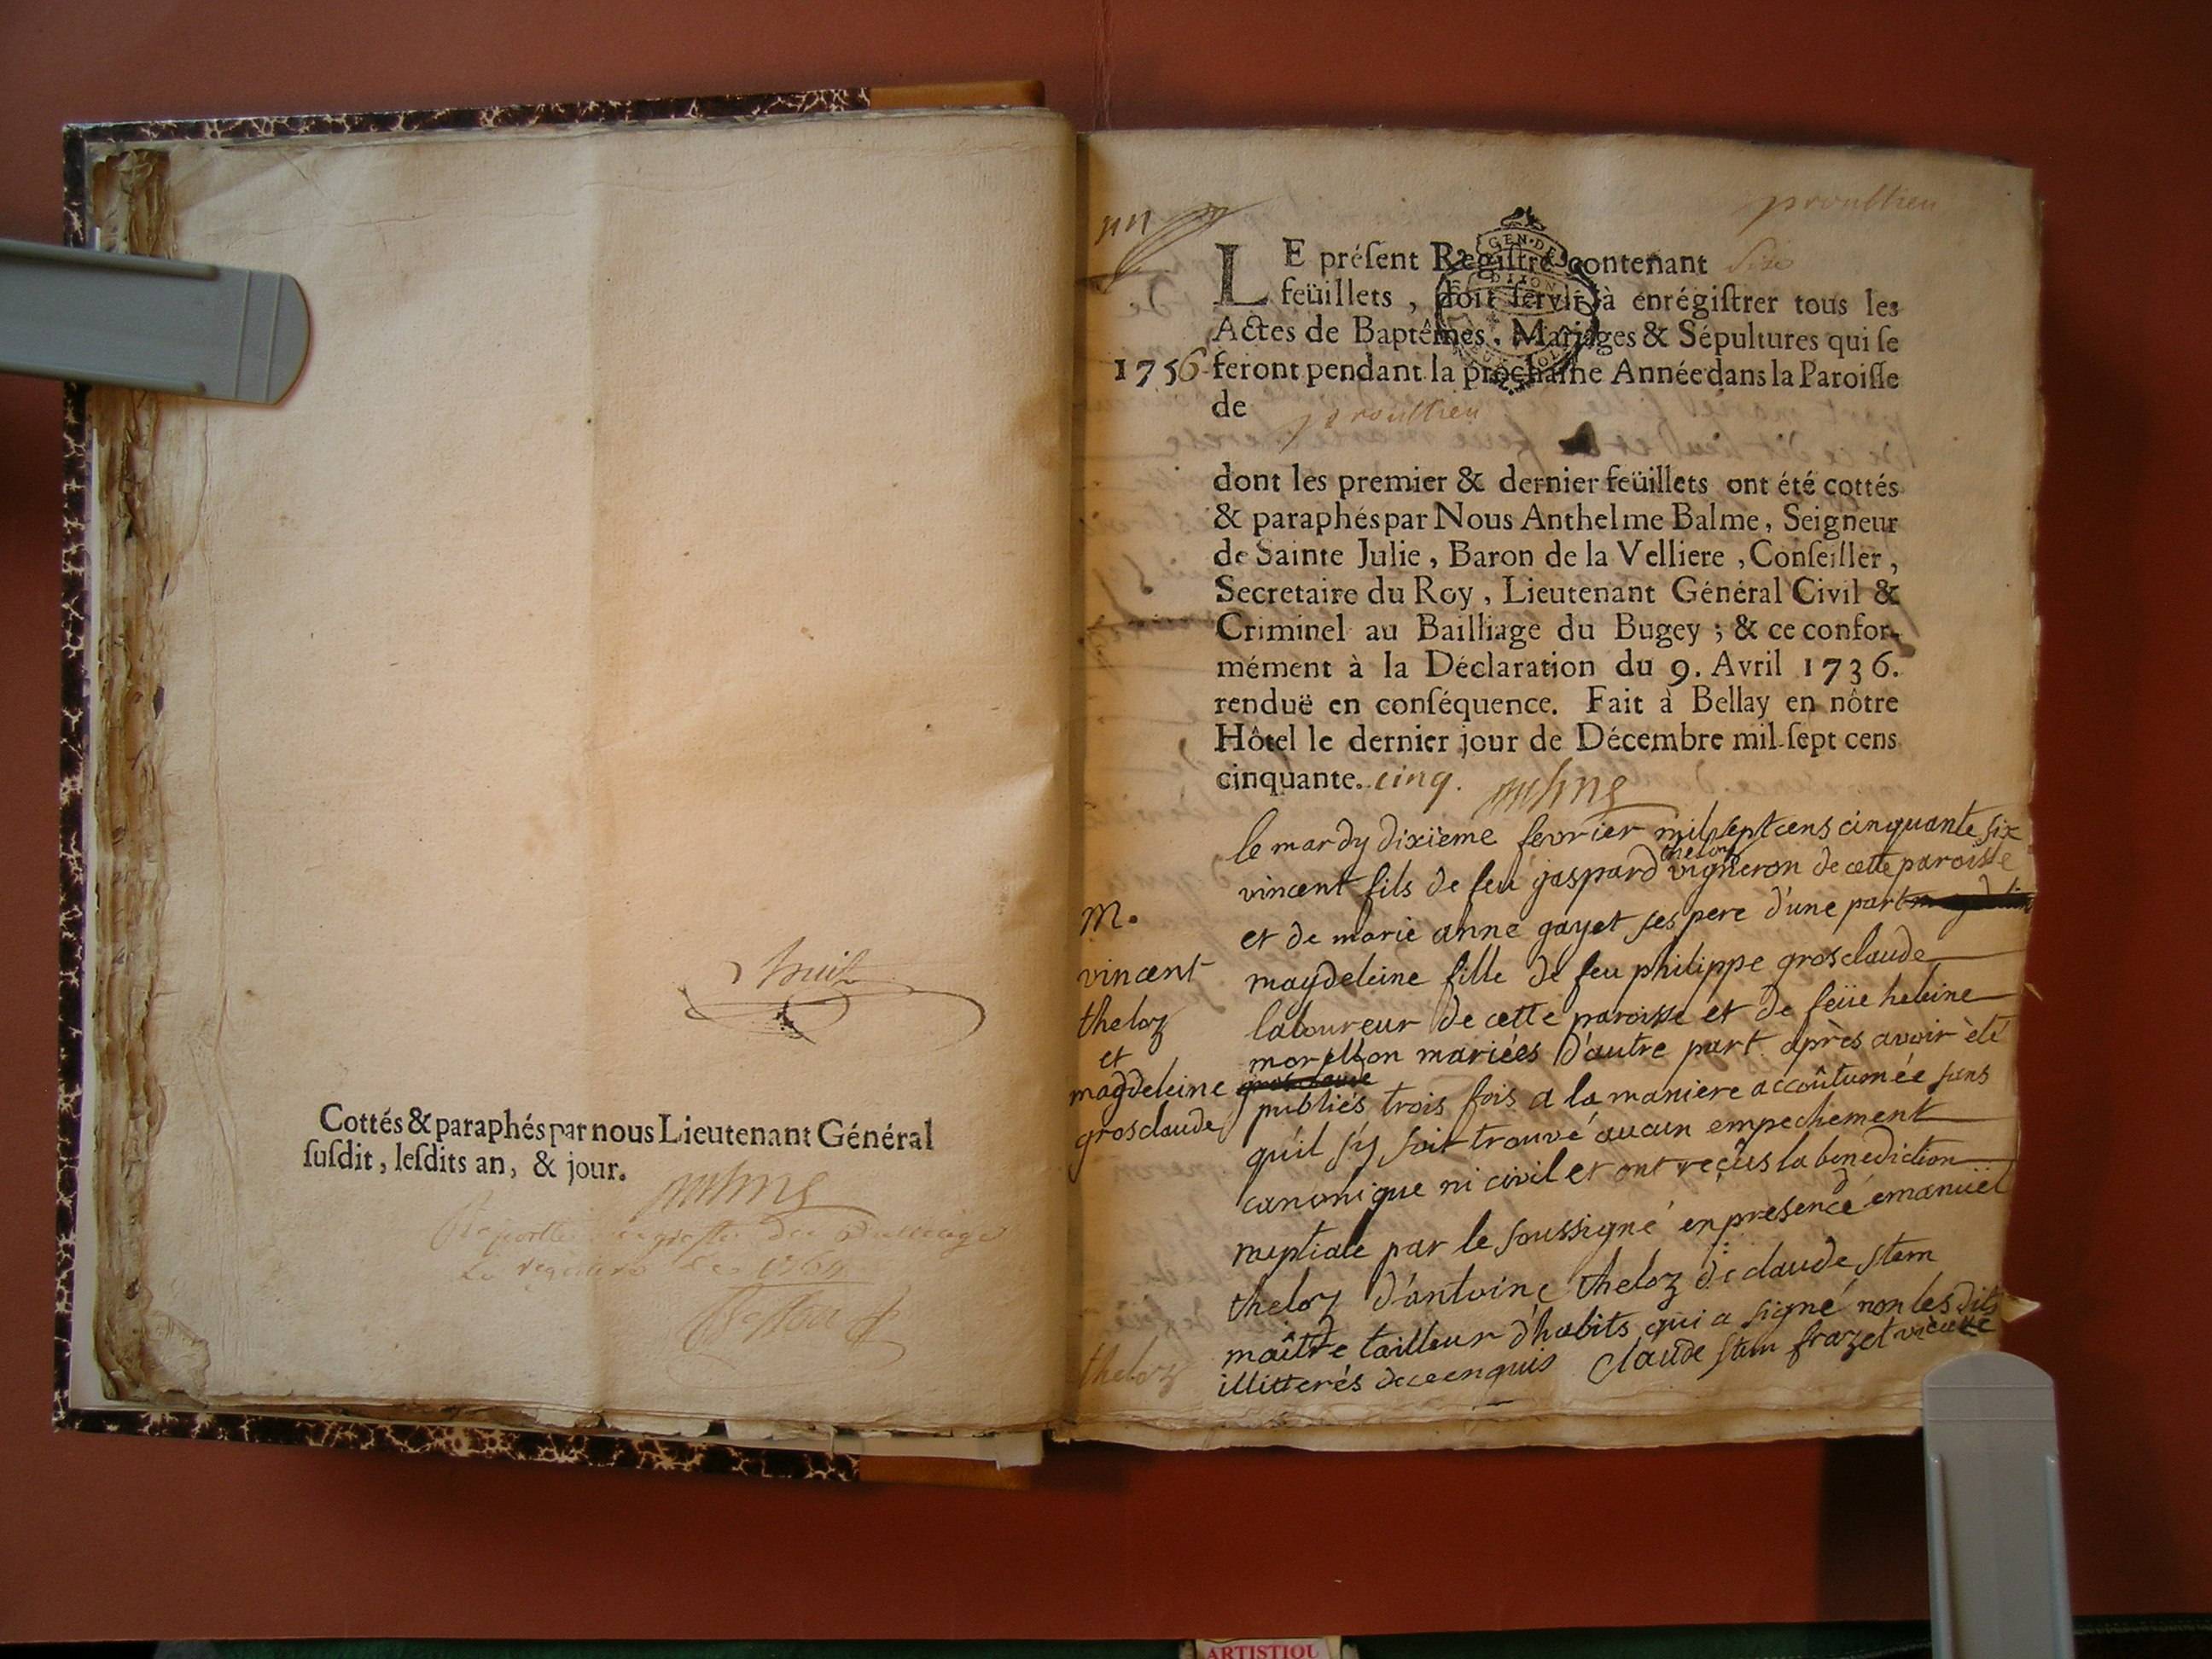 huit
Cottés & paraphés par nous Lieutenant Général
ſuſdit, leſdits an, & jour.
1764
un
proultieu
GEN·DE
DIJON
LE préſent Regiſtre contenant Six
feüillets, doit ſervir à enrégiſtrer tous les
Actes de Baptêmes, Mariages & Sépultures qui ſe
1756 feront pendant la prochaine Année dans la Paroiſſe
de proultieu
dont les premier & dernier feüillets ont été cottés
& paraphés par Nous Anthelme Balme, Seigneur
de Sainte Julie, Baron de la Velliere, Conſeiller,
Secretaire du Roy, Lieutenant Général Civil &
Criminel au Bailliage du Bugey; & ce confor-
mément à la Déclaration du 9. Avril 1736.
renduë en conſéquence. Fait à Bellay en nôtre
Hôtel le dernier jour de Décembre mil ſept cens
cinquante. cinq.
le mardy dixieme fevrier mil sept cens cinquante six
vincent fils de feu gaspard theloz vigneron de cette paroisse
et de marie anne gayet ses pere d'une part
magdeleine fille de feu philippe grosclaude
laboureur de cette paroisse et de feüe heleine
morellon mariées d'autre part après avoir èté
publiés trois fois a la maniere accoûtumée sans
qu'il s'y soit trouvé aucun empechement
canonique ni civil et ont reçûs la benediction
nuptiale par le soussigné en presence d'emanüel
theloz d'antoine theloz de claude stem
maître tailleur d'habits qui a signé non les dits
illitterés de ce enquis claude stem frazet vicaire
M.
vincent
theloz
et
magdeleine
grosclaude
theloz
ARTISTIQU